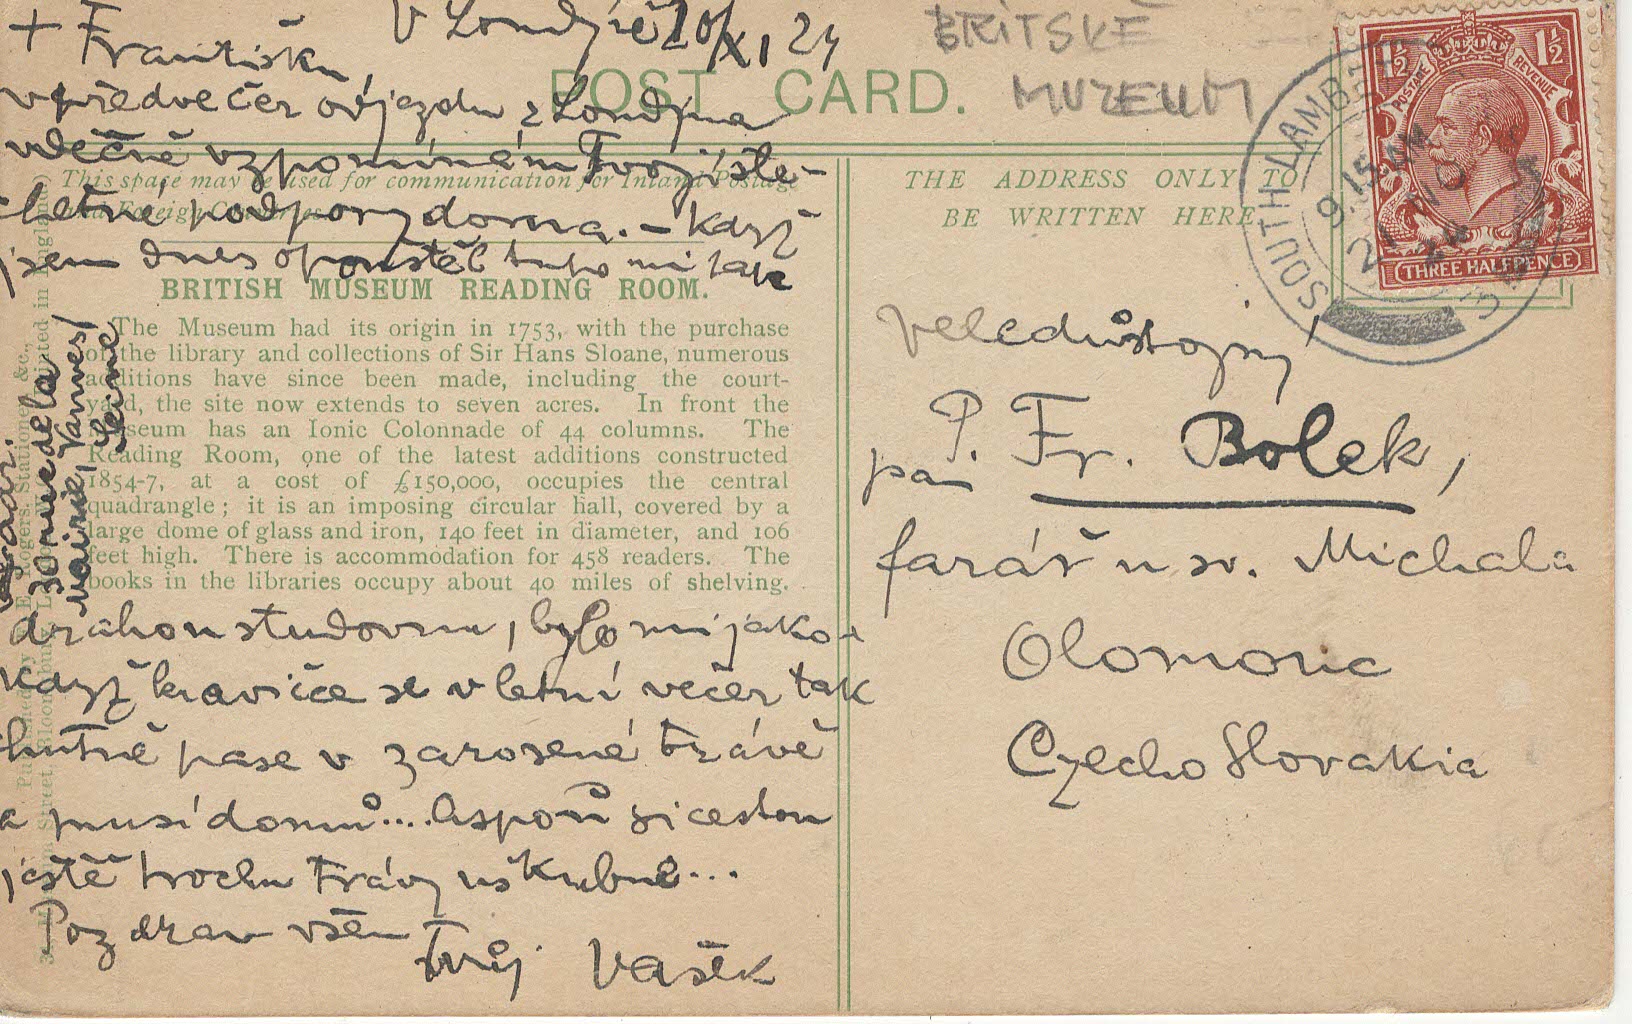 + Františku, V Londýně 20/XI 24
v předvečer odjezdu z Londýna
vděčně vzpomínám Tvojí ste-
letné podpory doma. – Když
jsem dnes opouštěl tuto mi tak
drahou studovnu, bylo mi jako-
když kravičce se v letní večer tak
chutně pase v zarosené trávě
a musí domů... Aspoň si cestou
ještě trochu trávy uškubne...
Pozdrav všem
Tvůj Vašek
30 neděla
Vannes
BRITSKÉ
MUZEUM
POST CARD.
This space may be used for communication for Inland Postage
and Foreign Countries
THE ADDRESS ONLY TO
BE WRITTEN HERE
BRITISH MUSEUM READING ROOM.
The Museum had its origin in 1753, with the purchase
of the library and collections of Sir Hans Sloane, numerous
additions have since been made, including the court-
yard, the site now extends to seven acres. In front the
Museum has an Ionic Colonnade of 44 columns. The
Reading Room, one of the latest additions constructed
1854-7, at a cost of £150,000, occupies the central
quadrangle; it is an imposing circular hall, covered by a
large dome of glass and iron, 140 feet in diameter, and 106
feet high. There is accommodation for 458 readers. The
books in the libraries occupy about 40 miles of shelving.
Veledůstojný
pan P. Fr. Bolek,
farář u sv. Michala
Olomouc
CzechoSlovakia
1½ 1½
POSTAGE REVENUE
THREE HALFPENCE
SOUTH LAMBETH
9.15 AM
21 NO
24